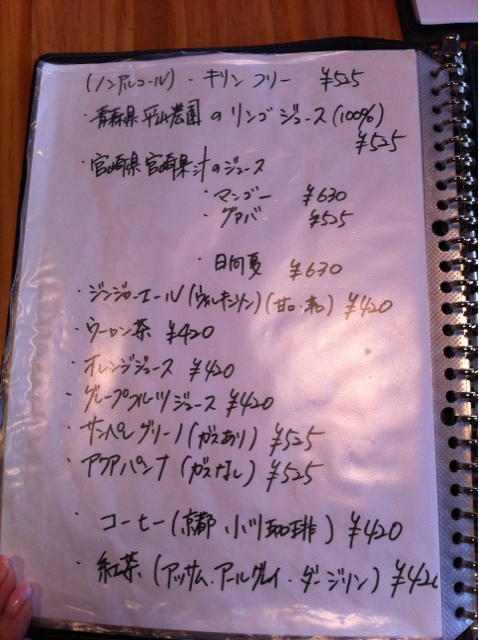 (ノンアルコール)・キリンフリー ¥525
・青森県 平山農園 のリンゴジュース(100%)
¥525
・宮崎県 宮崎果汁のジュース
・マンゴー ¥630
・グァバ ¥525
・日向夏 ¥630
・ジンジャーエール(ウィルキンソン)(甘口・辛口) ¥420
・ウーロン茶 ¥420
・オレンジジュース ¥420
・グレープフルーツジュース ¥420
・サンペレグリーノ(ガスあり) ¥525
・アクアパンナ(ガスなし) ¥525
・コーヒー(京都・小川珈琲) ¥420
・紅茶(アッサム・アールグレイ・ダージリン) ¥420